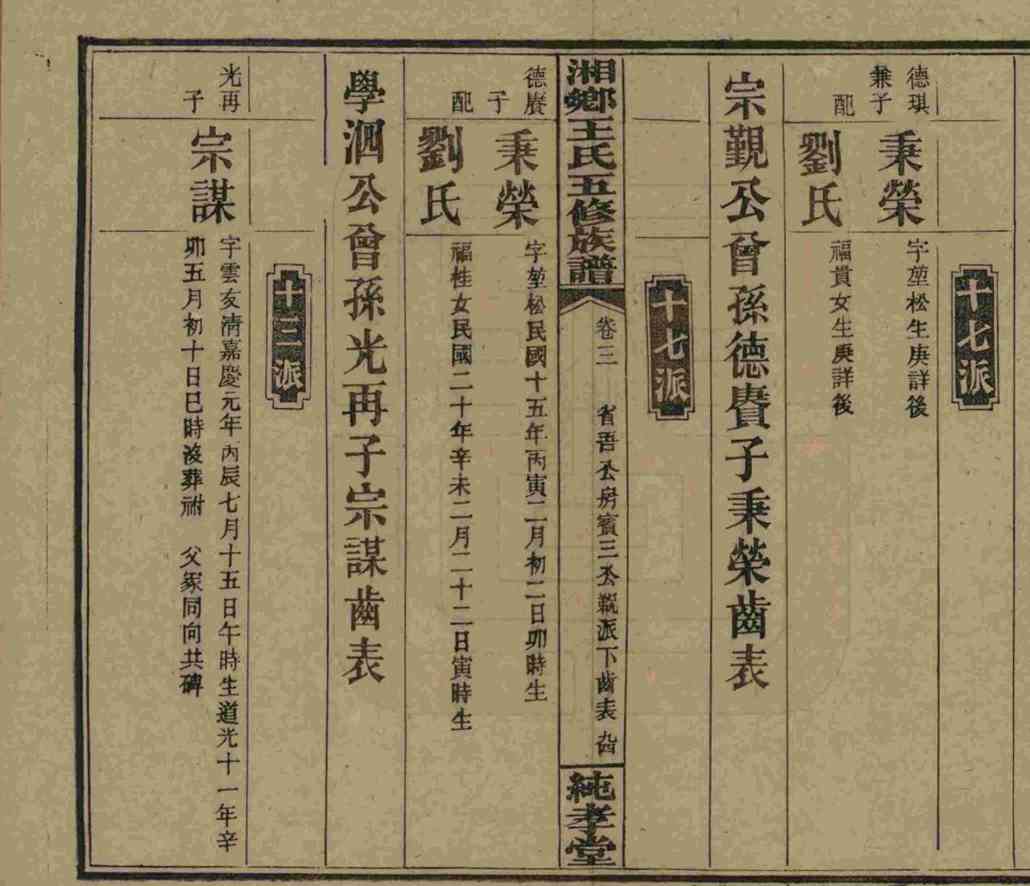 十七派
德琪
兼子
秉榮
字堃松生庚詳後
配
劉氏
福貴女生庚詳後
宗覲公曾孫德賡子秉榮齒表
十七派
湘鄉王氏五修族譜
卷三
省吾公房賓三公覲派下齒表
純孝堂
德賡
子
秉榮
字堃松民國十五年丙寅二月初二日卯時生
配
劉氏
福桂女民國二十年辛未二月二十二日寅時生
學泗公曾孫光再子宗謀齒表
十三派
光再
子
宗謀
字雲友清嘉慶元年丙辰七月十五日午時生道光十一年辛
卯五月初十日巳時沒葬祔 父冢同向共碑